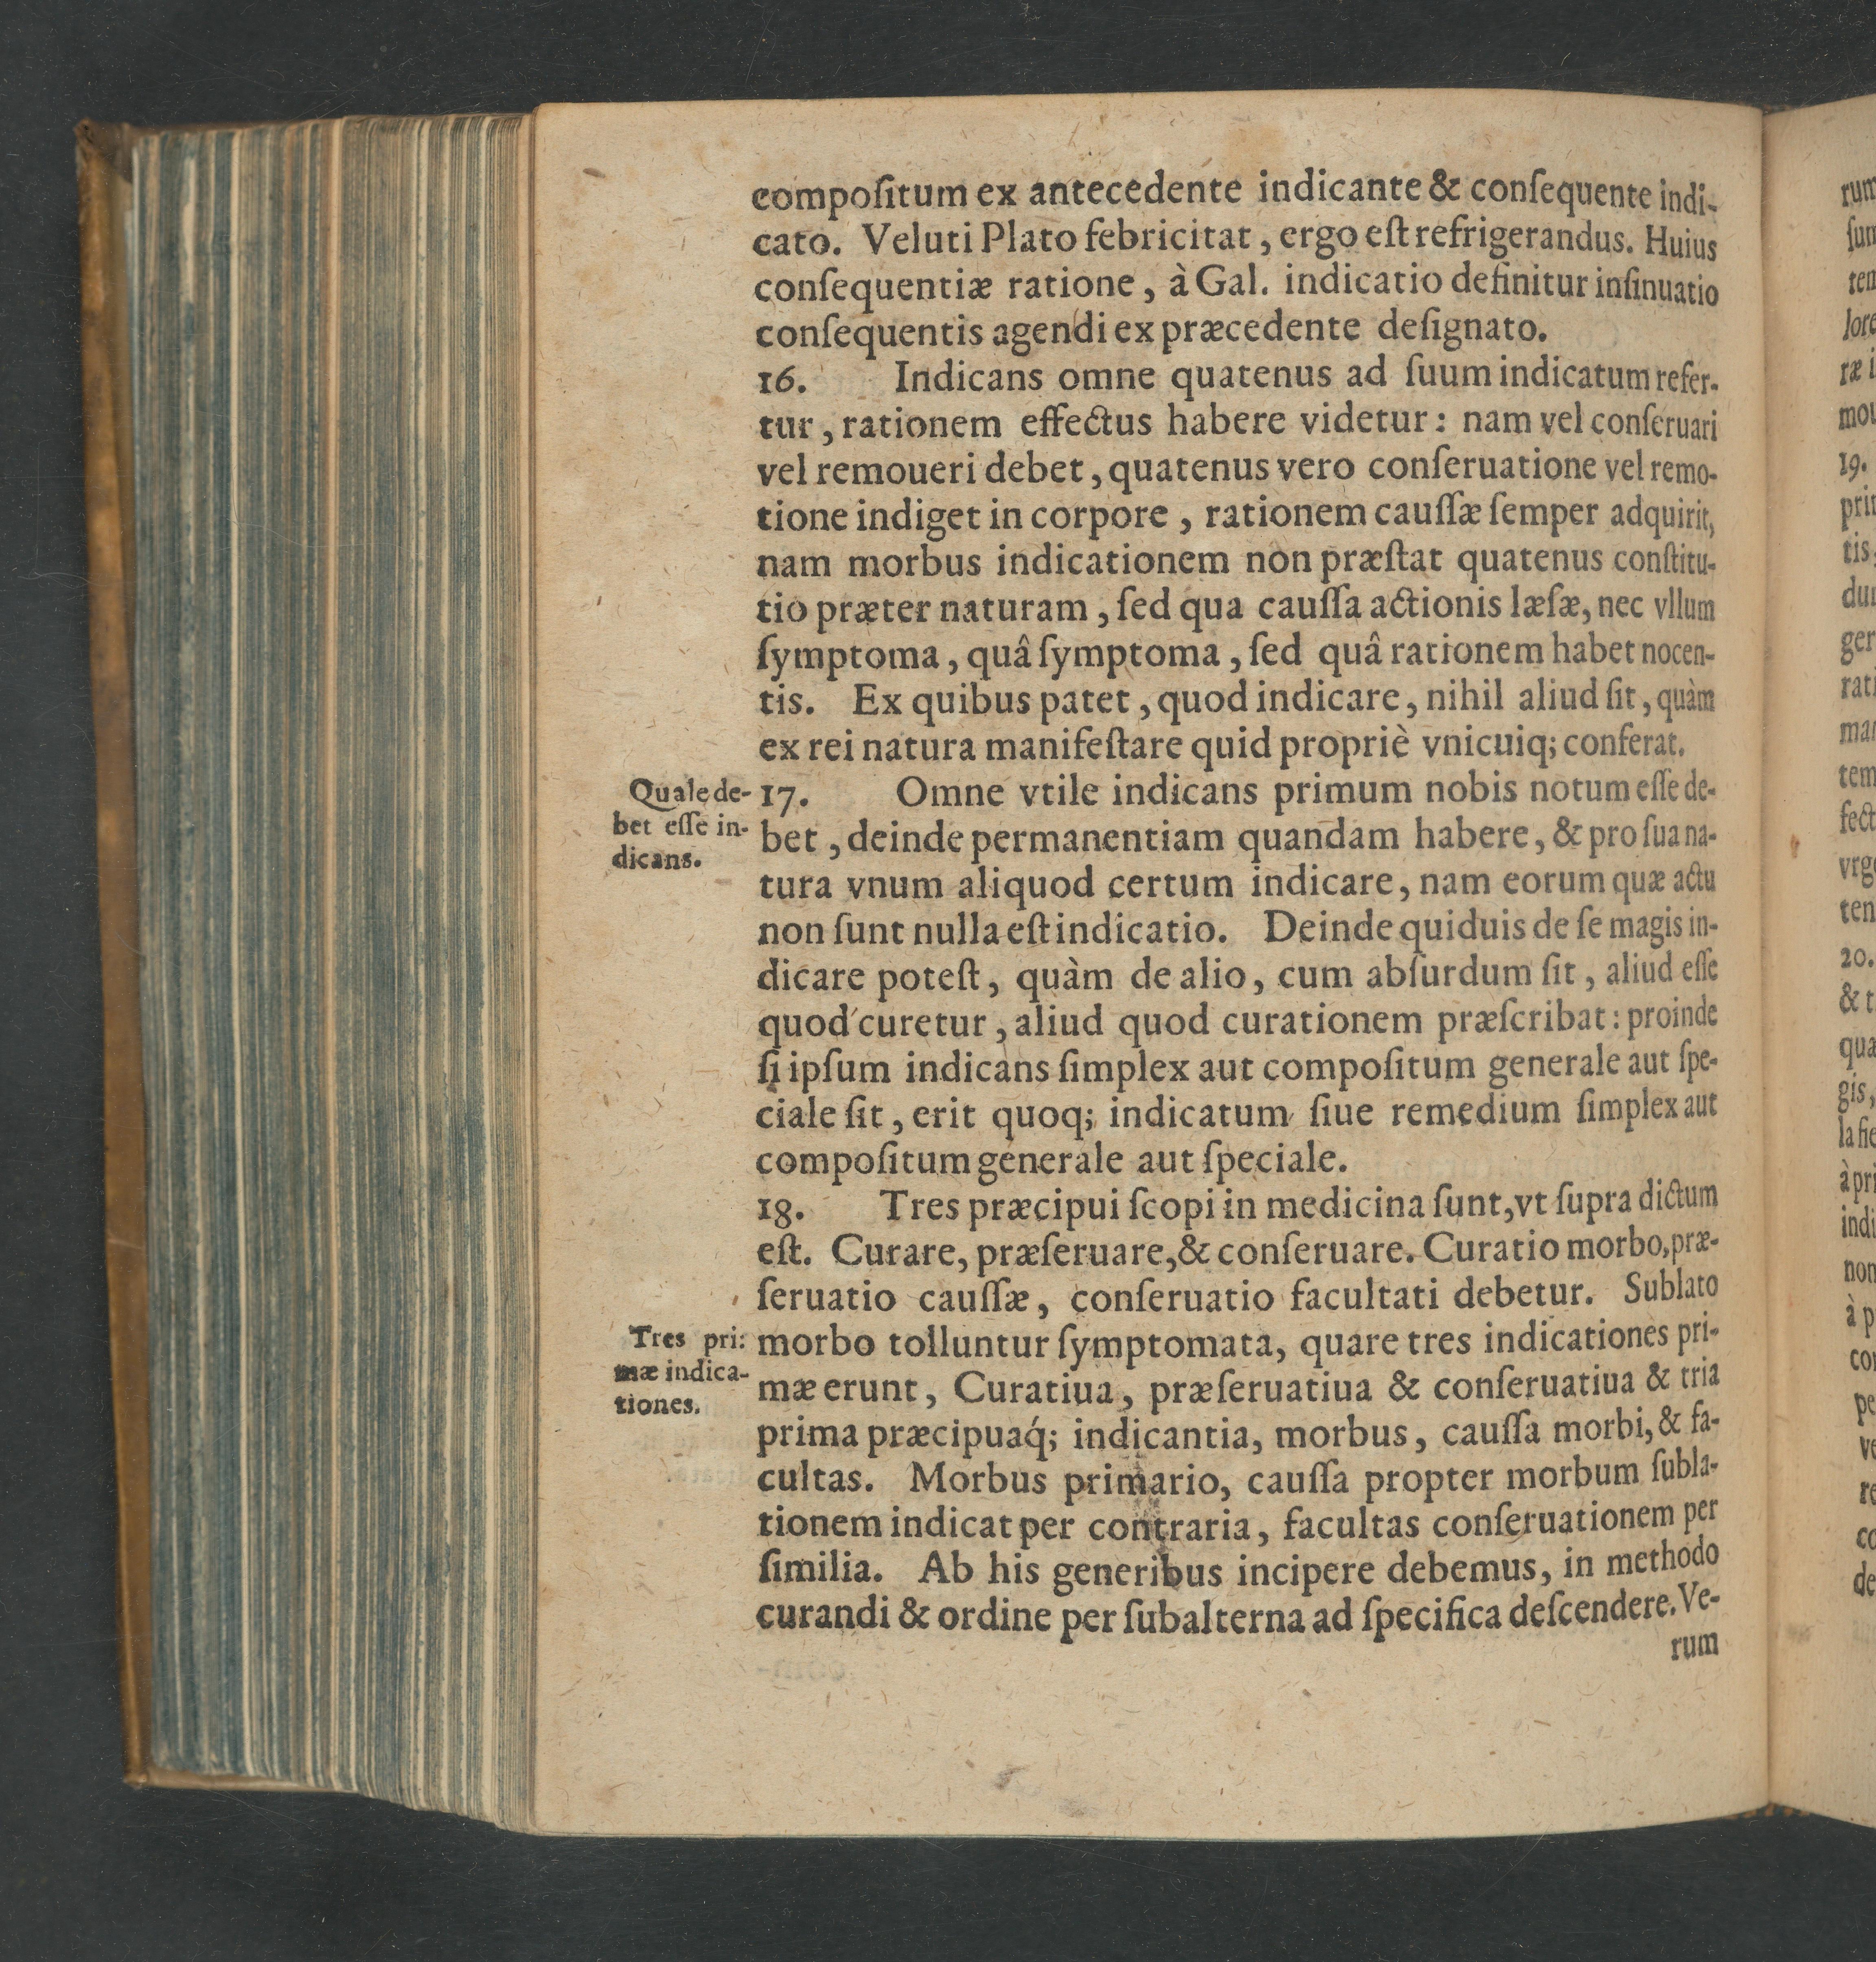 compoſitum ex antecedente indicante & conſequente indi-
cato. Veluti Plato febricitat, ergo eſt refrigerandus. Huius
conſequentiæ ratione, à Gal. indicatio definitur inſinuatio
conſequentis agendi ex præcedente deſignato.
16. Indicans omne quatenus ad ſuum indicatum refer-
tur, rationem effectus habere videtur: nam vel conſeruari
vel remoueri debet, quatenus vero conſeruatione vel remo-
tione indiget in corpore, rationem cauſſæ ſemper adquirit,
nam morbus indicationem non præſtat quatenus conſtitu-
tio præter naturam, ſed qua cauſſa actionis læſæ, nec vllum
ſymptoma, quâ ſymptoma, ſed quâ rationem habet nocen-
tis. Ex quibus patet, quod indicare, nihil aliud ſit, quàm
ex rei natura manifeſtare quid propriè vnicuiq; conferat.
Quale de-
bet eſſe in-
dicans.
17. Omne vtile indicans primum nobis notum eſſe de-
bet, deinde permanentiam quandam habere, & pro ſua na-
tura vnum aliquod certum indicare, nam eorum quæ actu
non ſunt nulla eſt indicatio. Deinde quiduis de ſe magis in-
dicare poteſt, quàm de alio, cum abſurdum ſit, aliud eſſe
quod curetur, aliud quod curationem præſcribat: proinde
ſi ipſum indicans ſimplex aut compoſitum generale aut ſpe-
ciale ſit, erit quoq; indicatum ſiue remedium ſimplex aut
compoſitum generale aut ſpeciale.
18. Tres præcipui ſcopi in medicina ſunt, vt ſupra dictum
eſt. Curare, præſeruare, & conſeruare. Curatio morbo, præ-
ſeruatio cauſſæ, conſeruatio facultati debetur. Sublato
Tres pri:
mæ indica-
tiones.
morbo tolluntur ſymptomata, quare tres indicationes pri-
mæ erunt, Curatiua, præſeruatiua & conſeruatiua & tria
prima præcipuaq́; indicantia, morbus, cauſſa morbi, & fa-
cultas. Morbus primario, cauſſa propter morbum ſubla-
tionem indicat per contraria, facultas conſeruationem per
ſimilia. Ab his generibus incipere debemus, in methodo
curandi & ordine per ſubalterna ad ſpecifica deſcendere. Ve-
rum